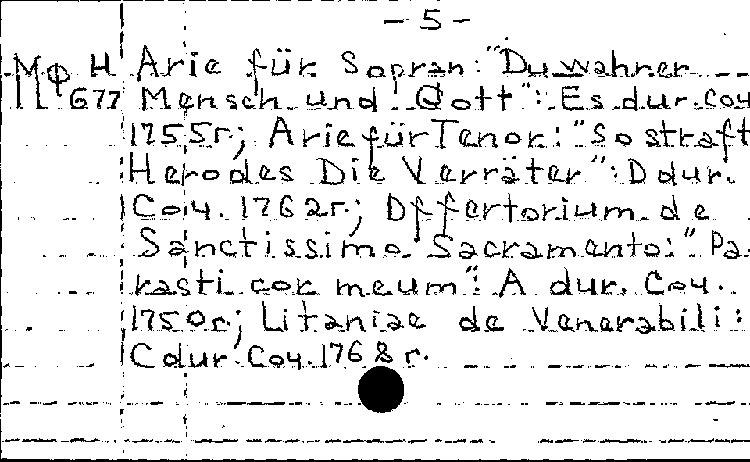 - 5 -
Мф Н Arie für Sopran: "Du wahrer
II 677 Mensch und Gott": Es dur. Соч
1755г; Arie für Tenor: "So straft
Herodes Die Verräter": D dur.
Соч. 1762г.; Offertorium de
Sanctissimo Sacramento: "Pa-
rasti cor meum": A dur. Соч.
1750г; Litaniae de Venerabili:
C dur. Соч. 1768 г.